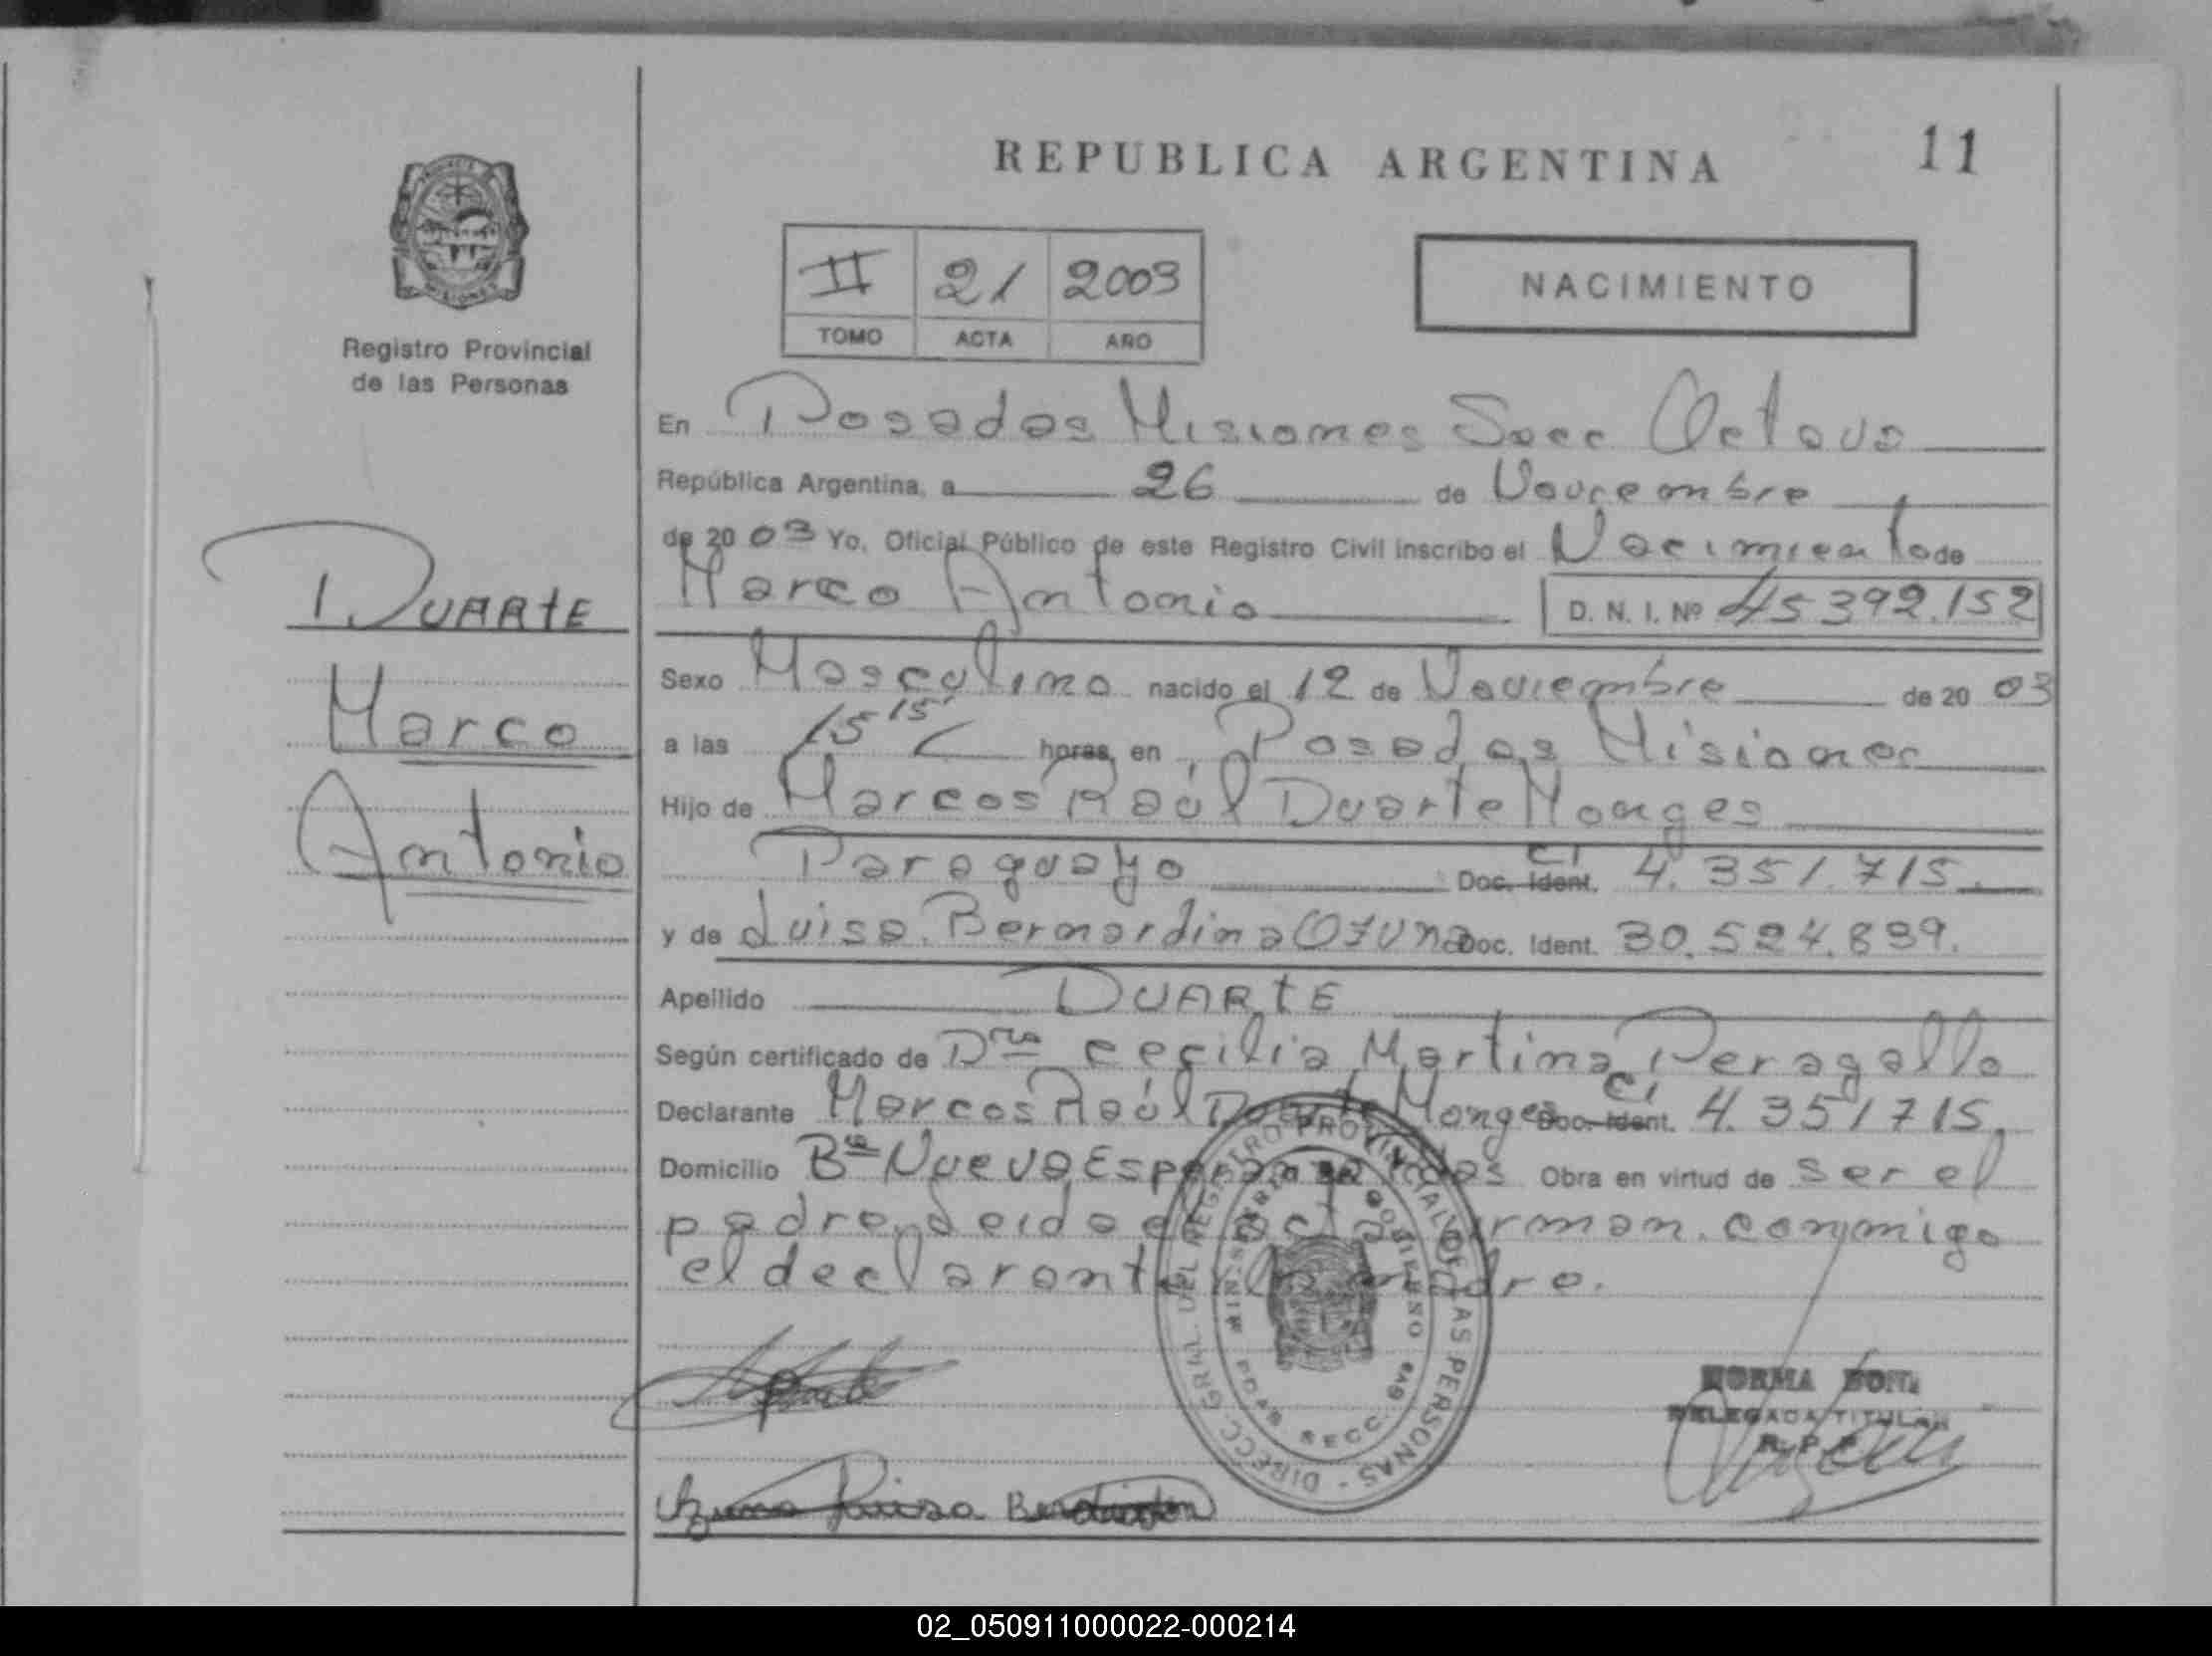 REPUBLICA ARGENTINA
11
MISIONES
Registro Provincial
de las Personas
II 21 2003
TOMO ACTA AÑO
NACIMIENTO
En Posadas Misiones Secc Octava
República Argentina, a 26 de Noviembre
de 2003 Yo, Oficial Público de este Registro Civil inscribo el Nacimiento de
Marco Antonio D. N. I. Nº 45392.152
DUARTE
Marco
Antonio
Sexo Masculino nacido el 12 de Noviembre de 2003
a las 15 15' horas, en Posadas Misiones
Hijo de Marcos Raúl Duarte Monges
Paraguayo Doc. Ident. CI 4.351.715.
y de Luisa Bernardina Ozuna Doc. Ident. 30.524.839.
Apellido DUARTE
Según certificado de Dra Cecilia Martina Peragallo
Declarante Marcos Raúl Duarte Monges Doc. Ident. CI 4.351715.
Domicilio Bº Nueva Esperanza Pdas Obra en virtud de ser el
padre. Leida el acta firman conmigo
el declarante y la madre.
DIRECC. GRAL. DEL REGISTRO PROVINCIAL DE LAS PERSONAS
NORMA
DELEGADA TITULAR
R. P. P.
Luisa
02_050911000022-000214